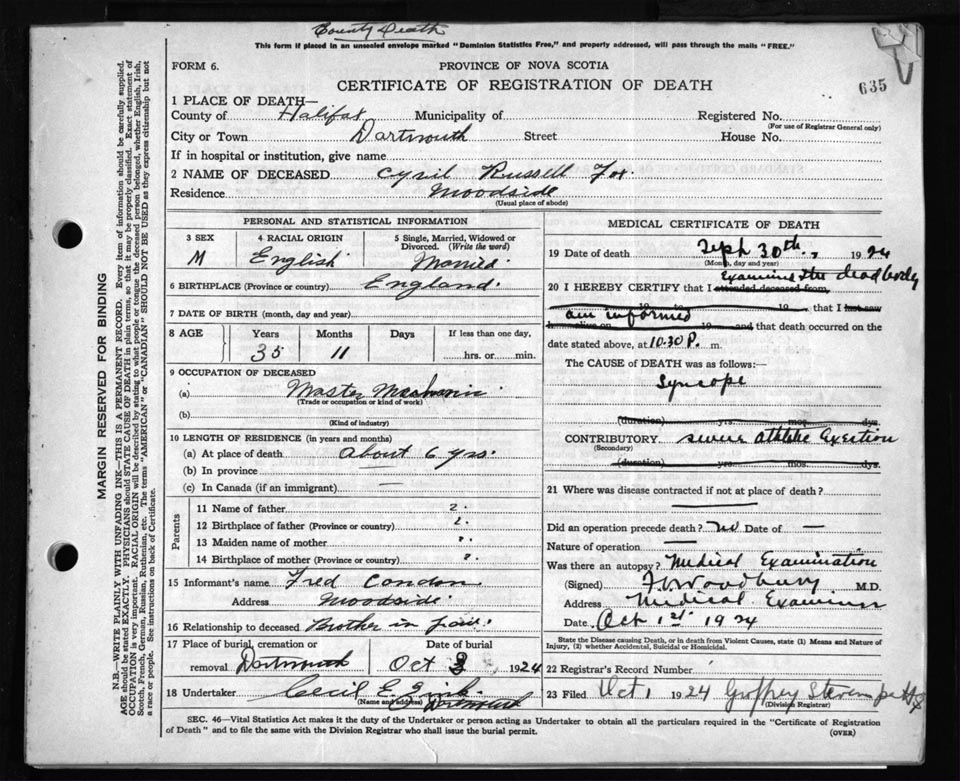 County Death
This form if placed in an unsealed envelope marked "Dominion Statistics Free," and properly addressed, will pass through the mails "FREE."
FORM 6.
PROVINCE OF NOVA SCOTIA
635
CERTIFICATE OF REGISTRATION OF DEATH
1 PLACE OF DEATH—
County of Halifax Municipality of Registered No.
(For use of Registrar General only)
City or Town Dartmouth Street House No.
If in hospital or institution, give name
2 NAME OF DECEASED Cyril Russell Fox.
Residence Woodside
(Usual place of abode)
PERSONAL AND STATISTICAL INFORMATION
3 SEX 4 RACIAL ORIGIN 5 Single, Married, Widowed or Divorced. (Write the word)
M English Married.
6 BIRTHPLACE (Province or country) England.
7 DATE OF BIRTH (month, day and year)
8 AGE Years Months Days If less than one day,
35 11 hrs. or min.
9 OCCUPATION OF DECEASED
(a) Master Mechanic
(Trade or occupation or kind of work)
(b)
(Kind of industry)
10 LENGTH OF RESIDENCE (in years and months)
(a) At place of death About 6 yrs.
(b) In province —
(c) In Canada (if an immigrant) —
Parents
11 Name of father ?.
12 Birthplace of father (Province or country) ?.
13 Maiden name of mother ?.
14 Birthplace of mother (Province or country) ?.
15 Informant's name Fred Condon
Address Woodside.
16 Relationship to deceased Brother in law.
17 Place of burial, cremation or removal Dartmouth Date of burial Oct 3 1924
18 Undertaker Cecil E. Zink.
(Name and address) Dartmouth
MEDICAL CERTIFICATE OF DEATH
19 Date of death Sept. 30th., 1924
(Month, day and year)
examined the dead body
20 I HEREBY CERTIFY that I attended deceased from
19 to 19 that I last saw
am informed
h alive on 19 and that death occurred on the
date stated above, at 10.30 P. m.
The CAUSE OF DEATH was as follows:—
Syncope
(duration) yrs. mos. dys.
CONTRIBUTORY severe athletic Exertion
(Secondary)
(duration) yrs. mos. dys.
21 Where was disease contracted if not at place of death?
Did an operation precede death? No Date of —
Nature of operation —
Was there an autopsy? Medical Examination
(Signed) Woodbury M.D.
Address Medical Examiner
Date, Oct 1st 1924
State the Disease causing Death, or in death from Violent Causes, state (1) Means and Nature of Injury, (2) whether Accidental, Suicidal or Homicidal.
22 Registrar's Record Number
23 Filed Oct 1 1924 Geoffrey Stevens
(Division Registrar)
SEC. 46—Vital Statistics Act makes it the duty of the Undertaker or person acting as Undertaker to obtain all the particulars required in the "Certificate of Registration
of Death" and to file the same with the Division Registrar who shall issue the burial permit.
(OVER)
MARGIN RESERVED FOR BINDING
N.B.—WRITE PLAINLY WITH UNFADING INK—THIS IS A PERMANENT RECORD. Every item of information should be carefully supplied.
AGE should be stated EXACTLY. PHYSICIANS should STATE CAUSE OF DEATH in plain terms, so that it may be properly classified. Exact statement of
OCCUPATION is very important. RACIAL ORIGIN will be described by stating to what people or tongue the deceased person belonged, whether English, Irish,
Scotch, French, German, Russian, Ruthenian, etc. The terms "AMERICAN" or "CANADIAN" SHOULD NOT BE USED as they express citizenship but not
a race or people. See instructions on back of Certificate.